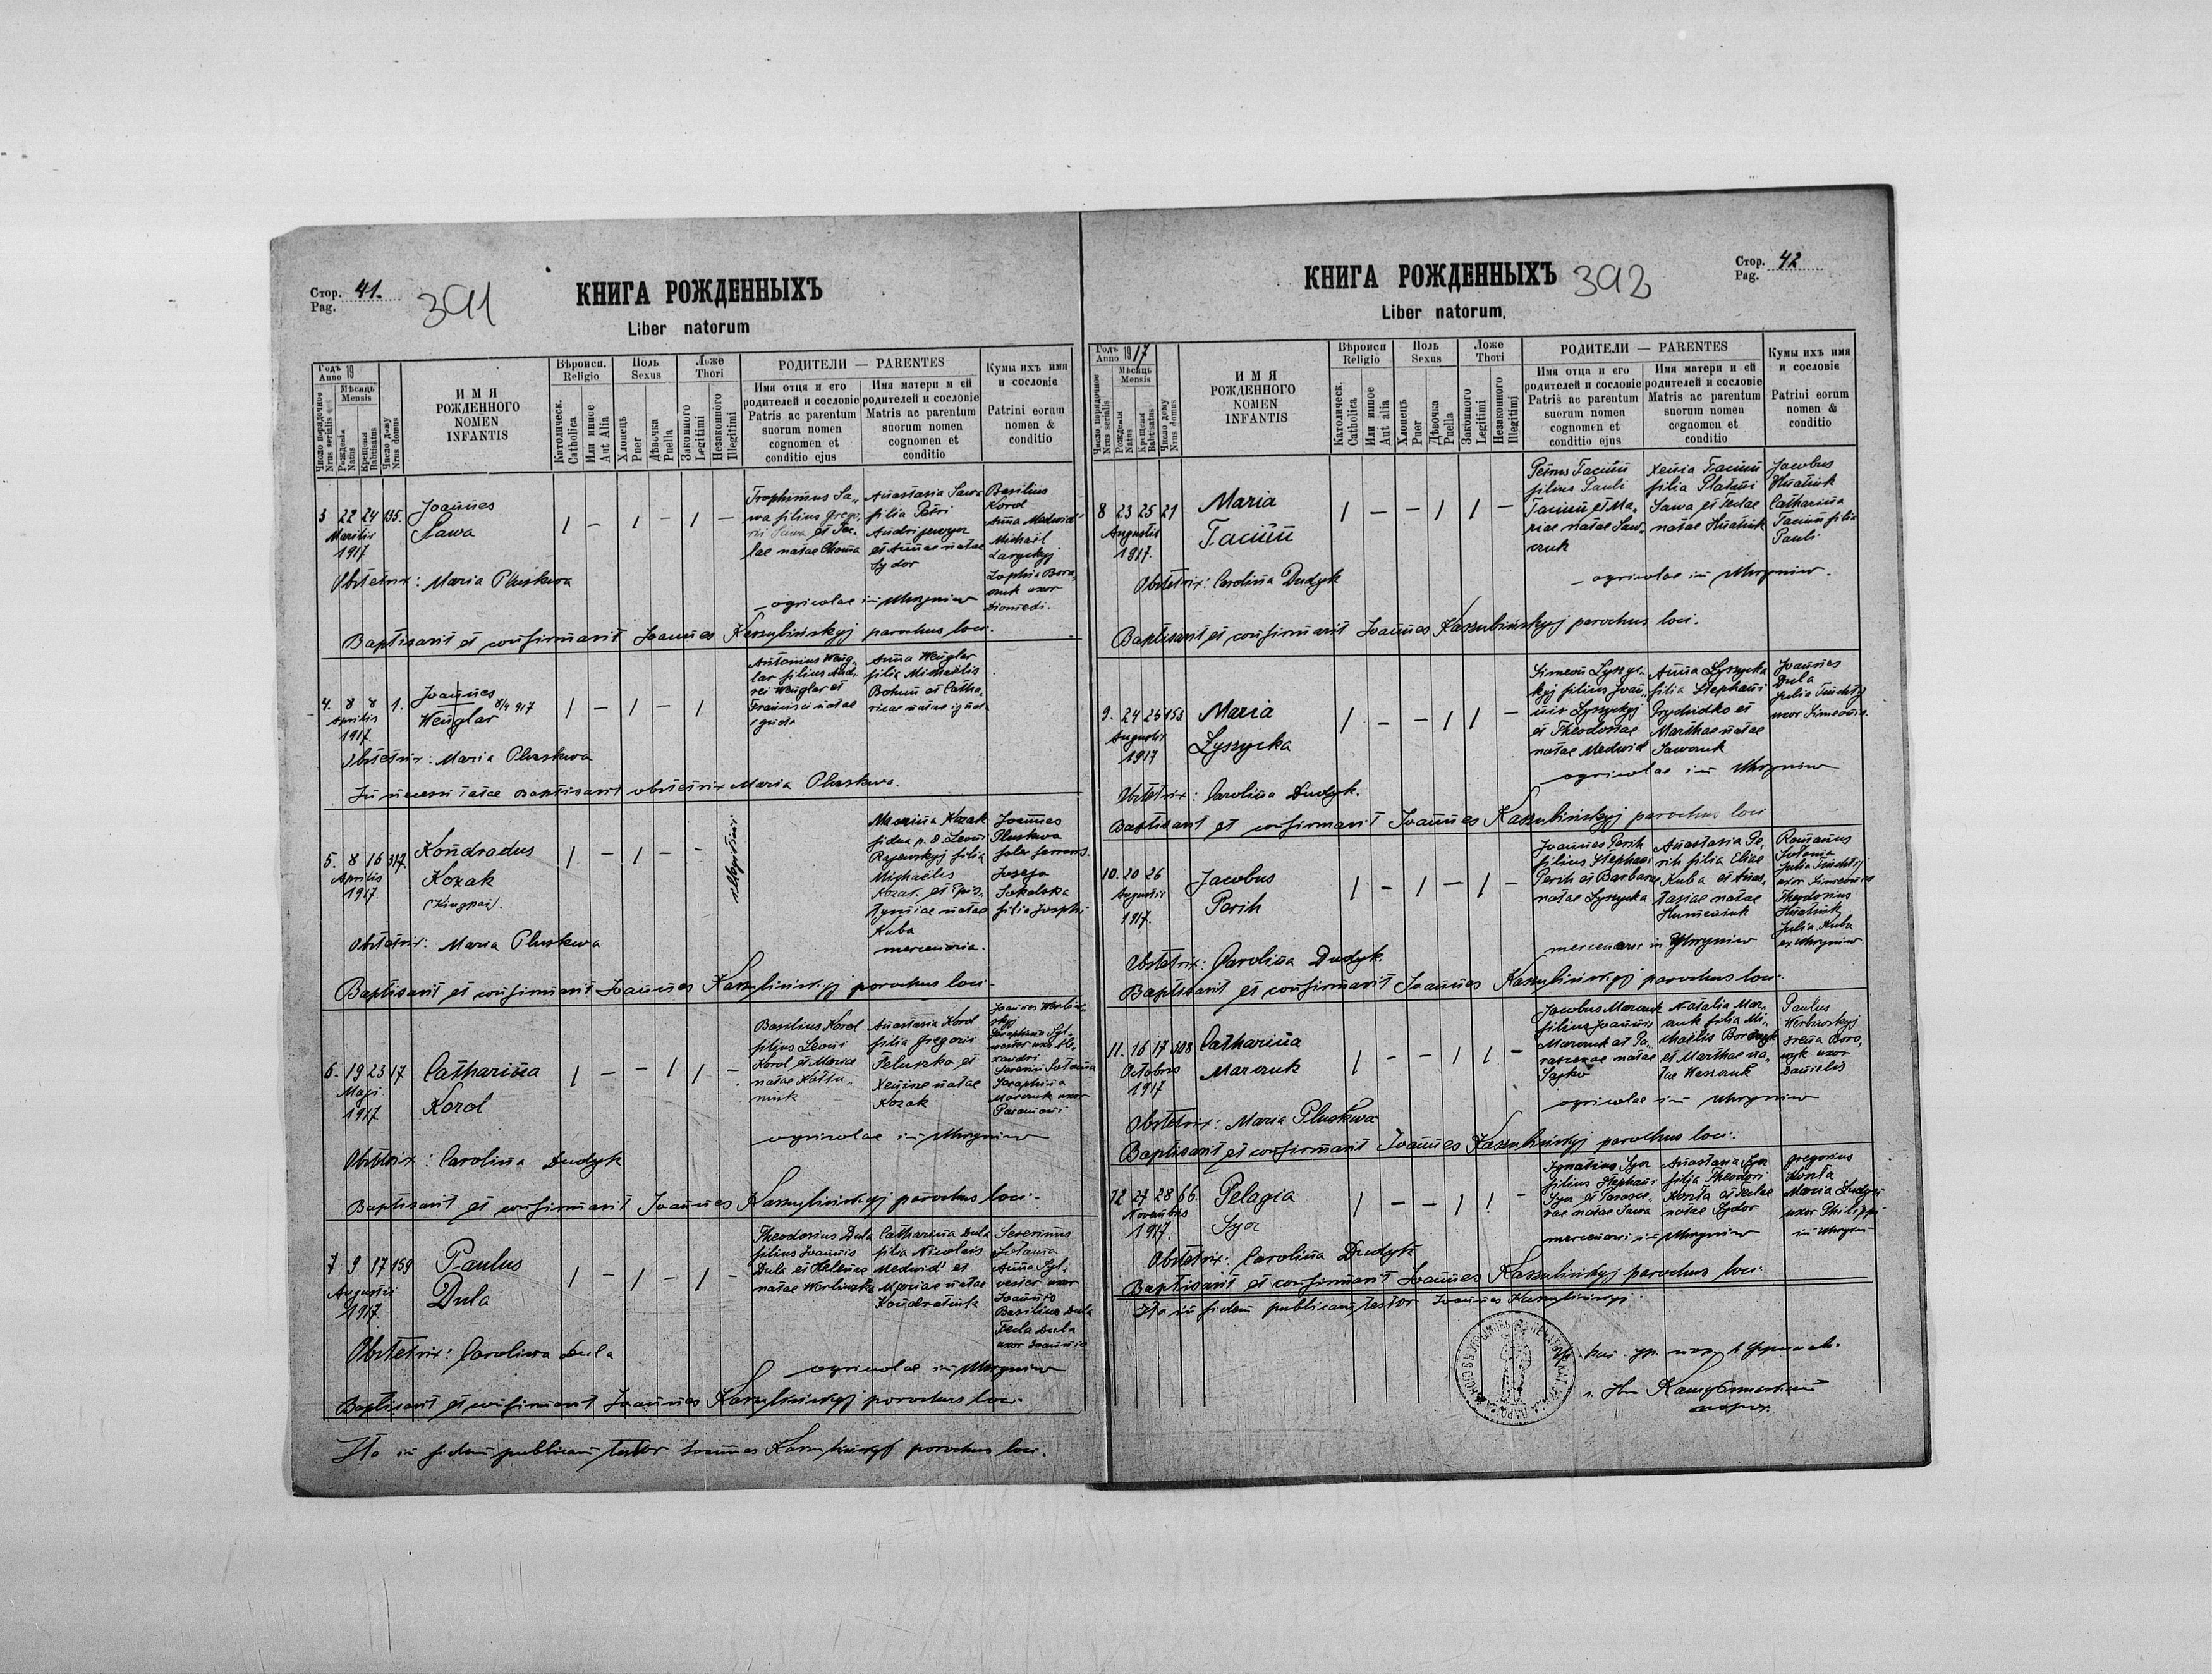 Стор. 41.
Pag.
391
КНИГА РОЖДЕННЫХЪ
Liber natorum
Годъ 19
Anno
Мѣсяць
Mensis
Число порядочное
Nrus serialis
Рожденія
Natus
Крещенія
Babtisatus
Число дому
Nrus domus
ИМЯ
РОЖДЕННОГО
NOMEN
INFANTIS
Вѣроисп.
Religio
Католическ.
Catholica
Или инное
Aut Alia
Поль
Sexus
Хлопець
Puer
Дѣвочка
Puella
Ложе
Thori
Законного
Legitimi
Незаконного
Illegitimi
РОДИТЕЛИ — PARENTES
Имя отца и его
родителей и сословіе
Patris ac parentum
suorum nomen
cognomen et
conditio ejus
Имя матери и ей
родителей и сословіе
Matris ac parentum
suorum nomen
cognomen et
conditio
Кумы ихъ имя
и сословіе
Patrini eorum
nomen &
conditio
3 22 24 135. Joannes
Martii Sawa
1917
1 – 1 – 1 –
Trophimus Sa-
wa filius Grego-
rii Sawa et The-
lae natae Choma
Anastasia Sawa
filia Petri
Andrijewycz
et Annae natae
Sydor
Basilius
Korol
Anna Medwid'
Michaël
Zophia Boro-
uxor
Diomedi.
Obstetrix: Maria Pluskwa
agricolae in Uhryniw
Baptisavit et confirmavit Joannes Kaszubinskyj parochus loci.
4. 8 8 1. Joannes
Aprilis Wenglar 8/4 917
1917.
1 – 1 – 1
Antonius Weng-
lar filius And-
rei Wenglar et
Francisci natae
Anna Wenglar
filia Michaëlis
Bohun et Catha-
ricae natae
Obstetrix: Maria Pluskwa
In necessitatae baptisavit obstetrix Maria Pluskwa.
5. 8 16 317. Kondradus
Aprilis Kozak
1917.
1 – 1 – –
illegitimi
Maxima Kozak
Rajewskyj filia
Michaëlis
Kozak et
natae
Kuba
mercenaria.
Joannes
Pluskwa
Josefa
Sokolska
filia Josephi
Obstetrix: Maria Pluskwa
Baptisavit et confirmavit Joannes Kaszubinskyj parochus loci.
6. 19 23 17 Catharina
Maji Korol
1917.
1 – – 1 1 –
Basilius Korol
filius Leonis
Korol et Mariae
natae
Anastasia Korol
filia Gregorii
Feluszka et
Xeniae natae
Kozak
Joannes
Seraphina
uxor
agricolae in Uhryniw
Obstetrix: Carolina Dudyk
Baptisavit et confirmavit Joannes Kaszubinskyj parochus loci.
7 9 17 159 Paulus
Augusti Dula
1917.
1 – 1 – 1 –
Theodorius Dula
filius Joannis
Dula et Helenae
natae
Catharina Dula
filia Nicolais
Medwid' et
Mariae natae
Kondratiuk
Severinus
Sotama
Anna Syl-
vester uxor
Joannis
Basilius Dula
Tecla Dula
uxor Joannis
Obstetrix: Carolina Dula
agricolae in Uhryniw
Baptisavit et confirmavit Joannes Kaszubinskyj parochus loci.
Ita in fidem publicam testor Joannes Kaszubinskyj parochus loci.
Стор. 42
Pag.
КНИГА РОЖДЕННЫХЪ 392
Liber natorum.
Годъ 1917
Anno
Мѣсяць
Mensis
Число порядочное
Nrus serialis
Рожденія
Natus
Крещенія
Babtisatus
Число дому
Nrus domus
ИМЯ
РОЖДЕННОГО
NOMEN
INFANTIS
Вѣроисп
Religio
Католическ.
Catholica
Или инное
Aut alia
Поль
Sexus
Хлопець
Puer
Дѣвочка
Puella
Ложе
Thori
Законного
Legitimi
Незаконного
Illegitimi
РОДИТЕЛИ — PARENTES
Имя отца и его
родителей и сословіе
Patris ac parentum
suorum nomen
cognomen et
conditio ejus
Имя матери и ей
родителей и сословіе
Matris ac parentum
suorum nomen
cognomen et
conditio
Кумы ихъ имя
и сословіе
Patrini eorum
nomen &
conditio
8 23 25 21 Maria
Augusti
1917.
1 – – 1 1 –
Petrus
filius Pauli
et Ma-
riae natae Saw-
czuk
Xenia
filia Platoni
Sawa et Teclae
natae Hnatiuk
Jacobus
Hnatiuk
Catharina
filia
Pauli
Obstetrix: Carolina Dudyk
agricolae in Uhryniw.
Baptisavit et confirmavit Joannes Kaszubinskyj parochus loci.
9. 24 26 153 Maria
Augusti Łyszycka
1917
1 – – 1 1 –
Simeon Łyszyc-
kyj filius Joan-
nis Łyszyckyj
et Theodosiae
natae Medwid
Anna Łyszycka
filia Stephani
Hrychidko et
Marthae natae
Sawczuk
Joannes
Dula
Julia
uxor Simeonis.
agricolae in Uhryniw
Obstetrix: Carolina Dudyk.
Baptisavit et confirmavit Joannes Kaszubinskyj parochus loci
10. 20 26 Jacobus
Augusti Perih
1917.
1 – 1 – 1 –
Joannes Perih
filius Stephani
Perih et Barbarae
natae Łyszycka
Anastasia Pe-
rih filia Eliae
Kuba et Anas-
tasiae natae
Humeniuk
Romanus
Sotama
Julia
uxor Simeonis
Theodorius
Hnatiuk
Julia Kuba
ex Uhryniw.
mercenarii in Uhryniw
Obstetrix: Carolina Dudyk.
Baptisavit et confirmavit Joannes Kaszubinskyj parochus loci.
11. 16 17 308 Catharina
Octobris Marczuk
1917
1 – – 1 1 –
Jacobus Marczuk
filius Joannis
Marczuk et Pa-
rascevae natae
Sajko
Natalia Mar-
czuk filia Mi-
chaëlis
et Marthae na-
tae
Paulus
Irena Boro-
uxor
Danielis
agricolae in Uhryniw
Obstetrix: Maria Pluskwa
Baptisavit et confirmavit Joannes Kaszubinskyj parochus loci.
12 27 28 66. Pelagia
Novembris
1917.
1 – – 1 1 –
Ignatius
filius Stephani
et Parasce-
vae natae Sawa
Anastasia
filia Theodori
Konta et Teclae
natae Sydor
Gregorius
Konta
Maria
uxor Philippi
in Uhryniw
mercenarii in Uhryniw
Obstetrix: Carolina Dudyk
Baptisavit et confirmavit Joannes Kaszubinskyj parochus loci.
Ita in fidem publicam testor Joannes Kaszubinskyj.